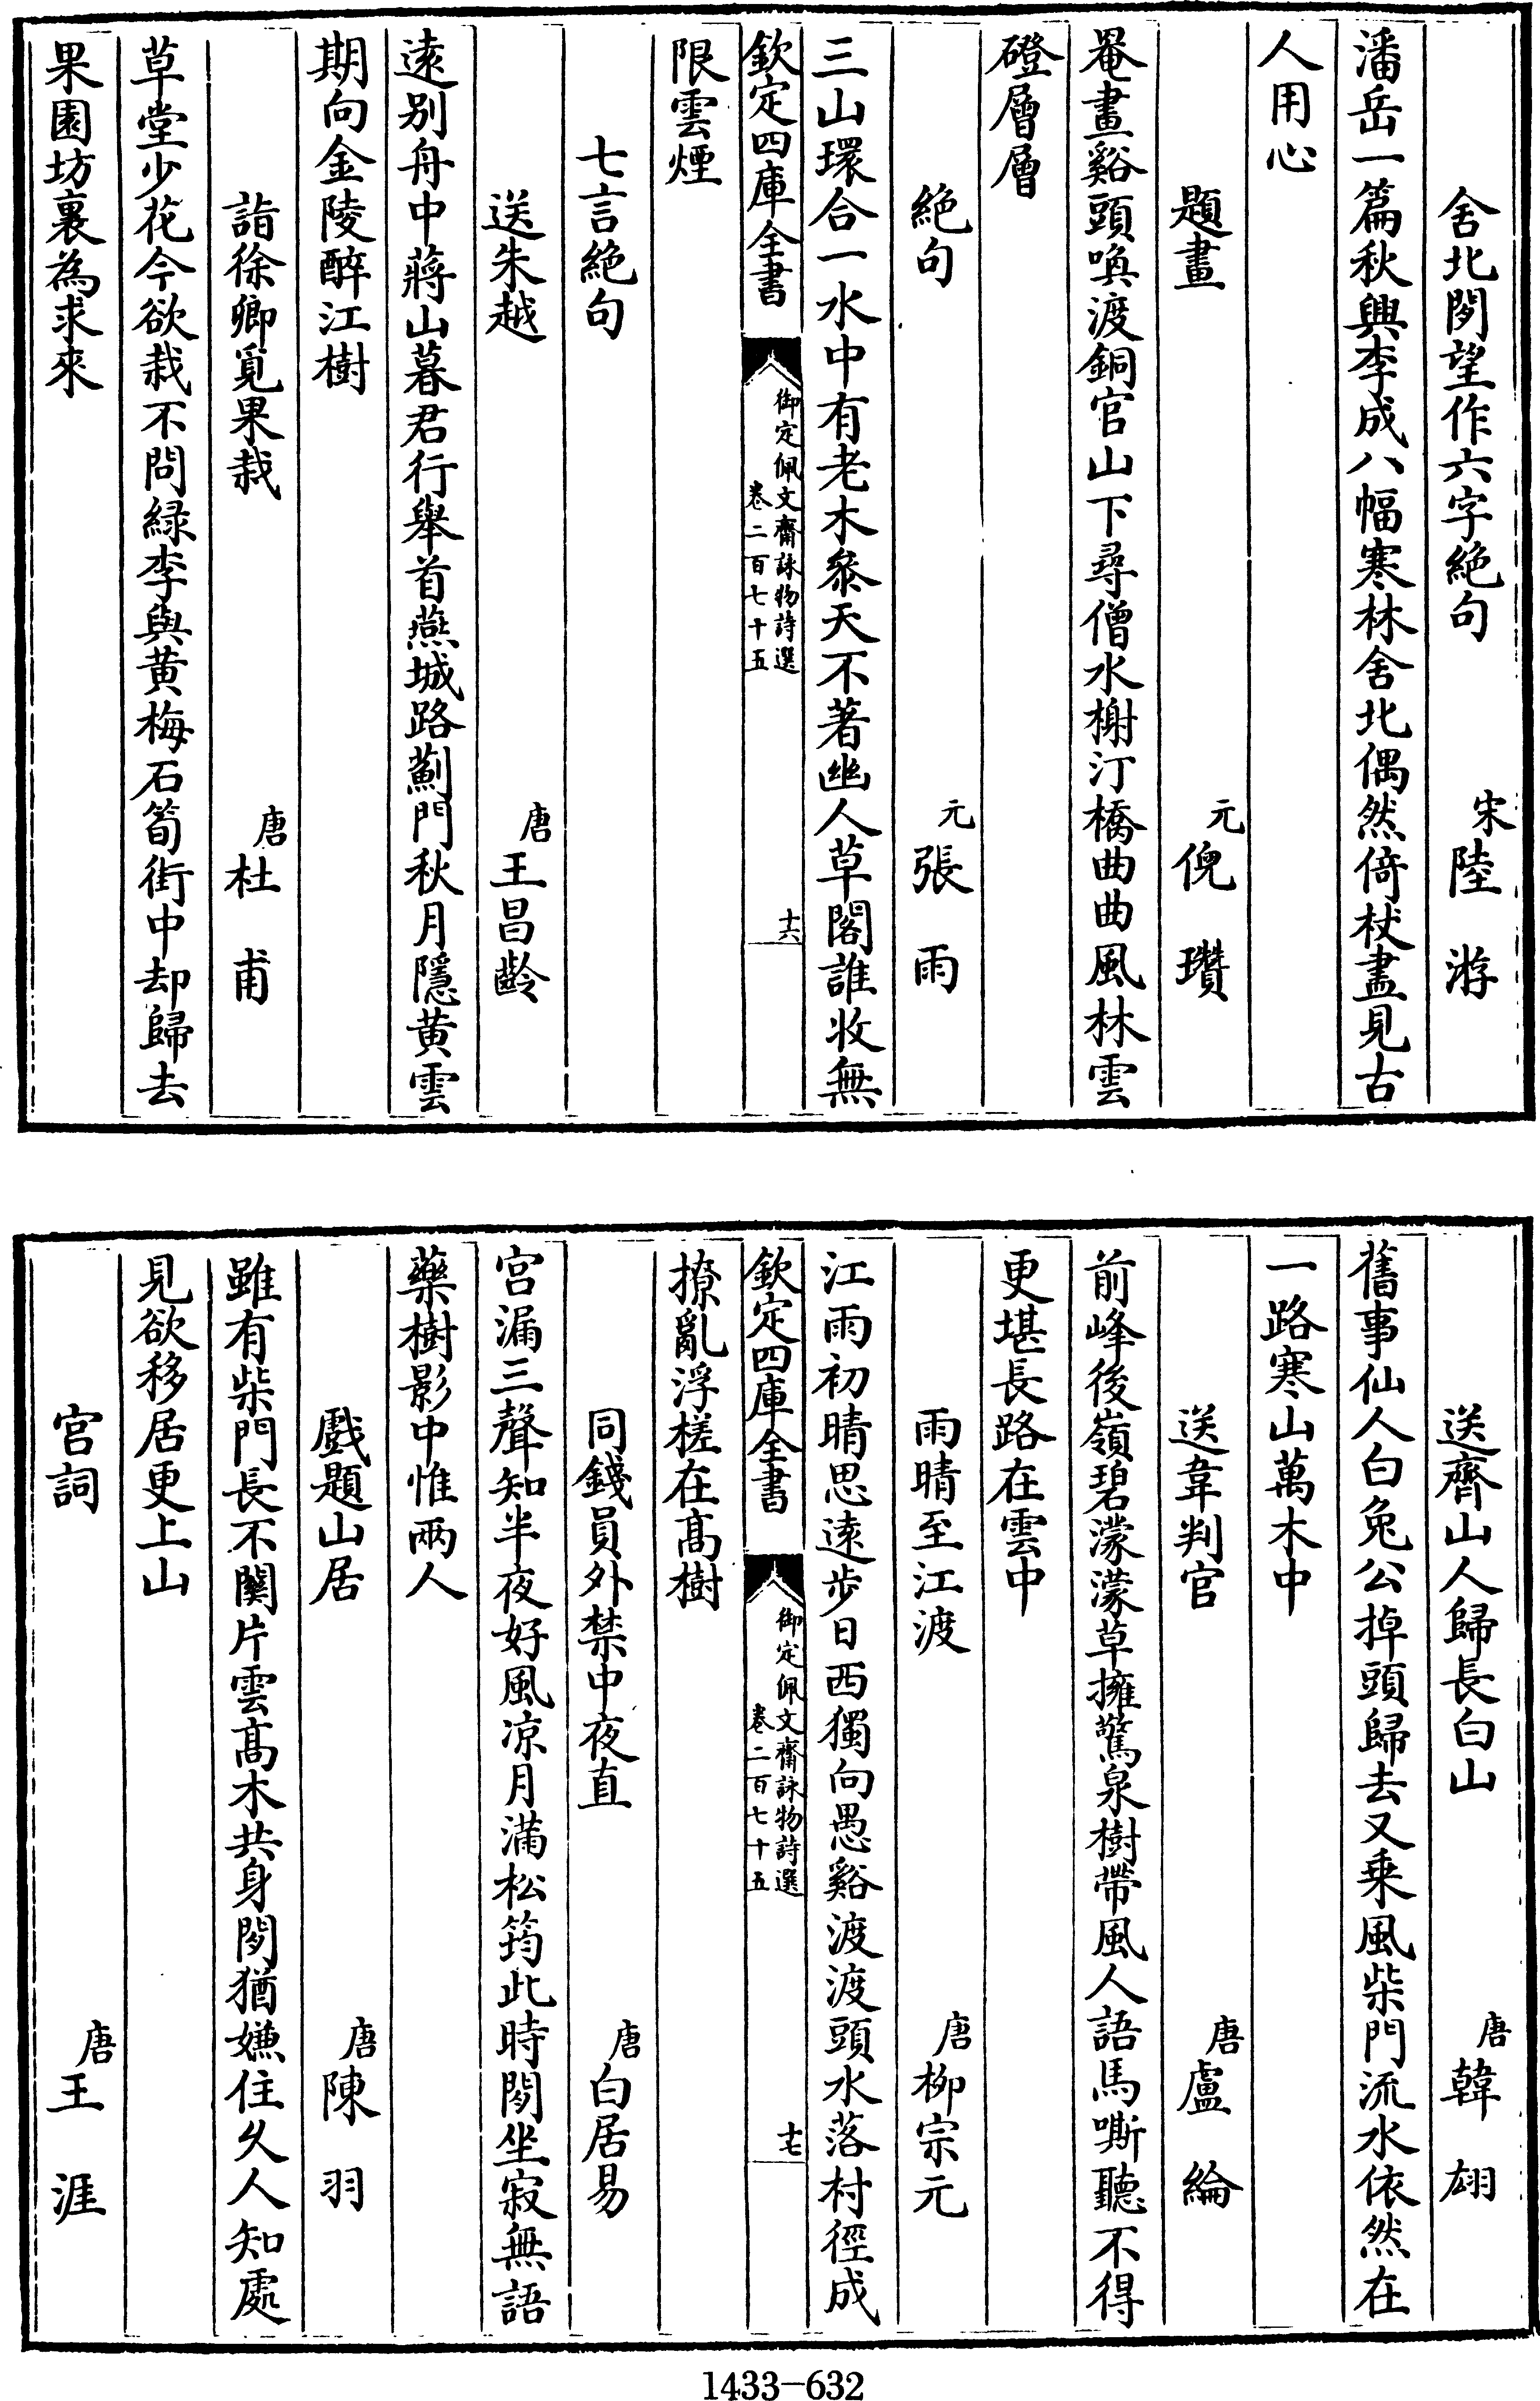 舍北閒望作六字絶句 宋陸游
潘岳一篇秋興李成八幅寒林舍北偶然倚杖盡見古
人用心
題畫 元倪瓚
罨畫谿頭喚渡銅官山下尋僧水榭汀橋曲曲風林雲
磴層層
絶句 元張雨
三山環合一水中有老木叅天不著幽人草閣誰收無
欽定四庫全書 御定佩文齋詠物詩選 卷二百七十五 十六
限雲煙
七言絶句
送朱越 唐王昌齡
遠别舟中蔣山暮君行舉首燕城路薊門秋月隱黄雲
期向金陵醉江樹
詣徐卿覓果栽 唐杜甫
草堂少花今欲栽不問緑李與黄梅石筍街中却歸去
果園坊裏為求來
送齊山人歸長白山 唐韓翃
舊事仙人白兔公掉頭歸去又乘風柴門流水依然在
一路寒山萬木中
送韋判官 唐盧綸
前峰後嶺碧濛濛草擁驚泉樹帶風人語馬嘶聽不得
更堪長路在雲中
雨晴至江渡 唐柳宗元
江雨初晴思遠步日西獨向愚谿渡渡頭水落村徑成
欽定四庫全書 御定佩文齋詠物詩選 卷二百七十五 十七
撩亂浮槎在髙樹
同錢員外禁中夜直 唐白居易
宫漏三聲知半夜好風凉月滿松筠此時閒坐寂無語
藥樹影中惟兩人
戲題山居 唐陳羽
雖有柴門長不關片雲髙木共身閒猶嫌住久人知處
見欲移居更上山
宫詞 唐王涯
1433-632